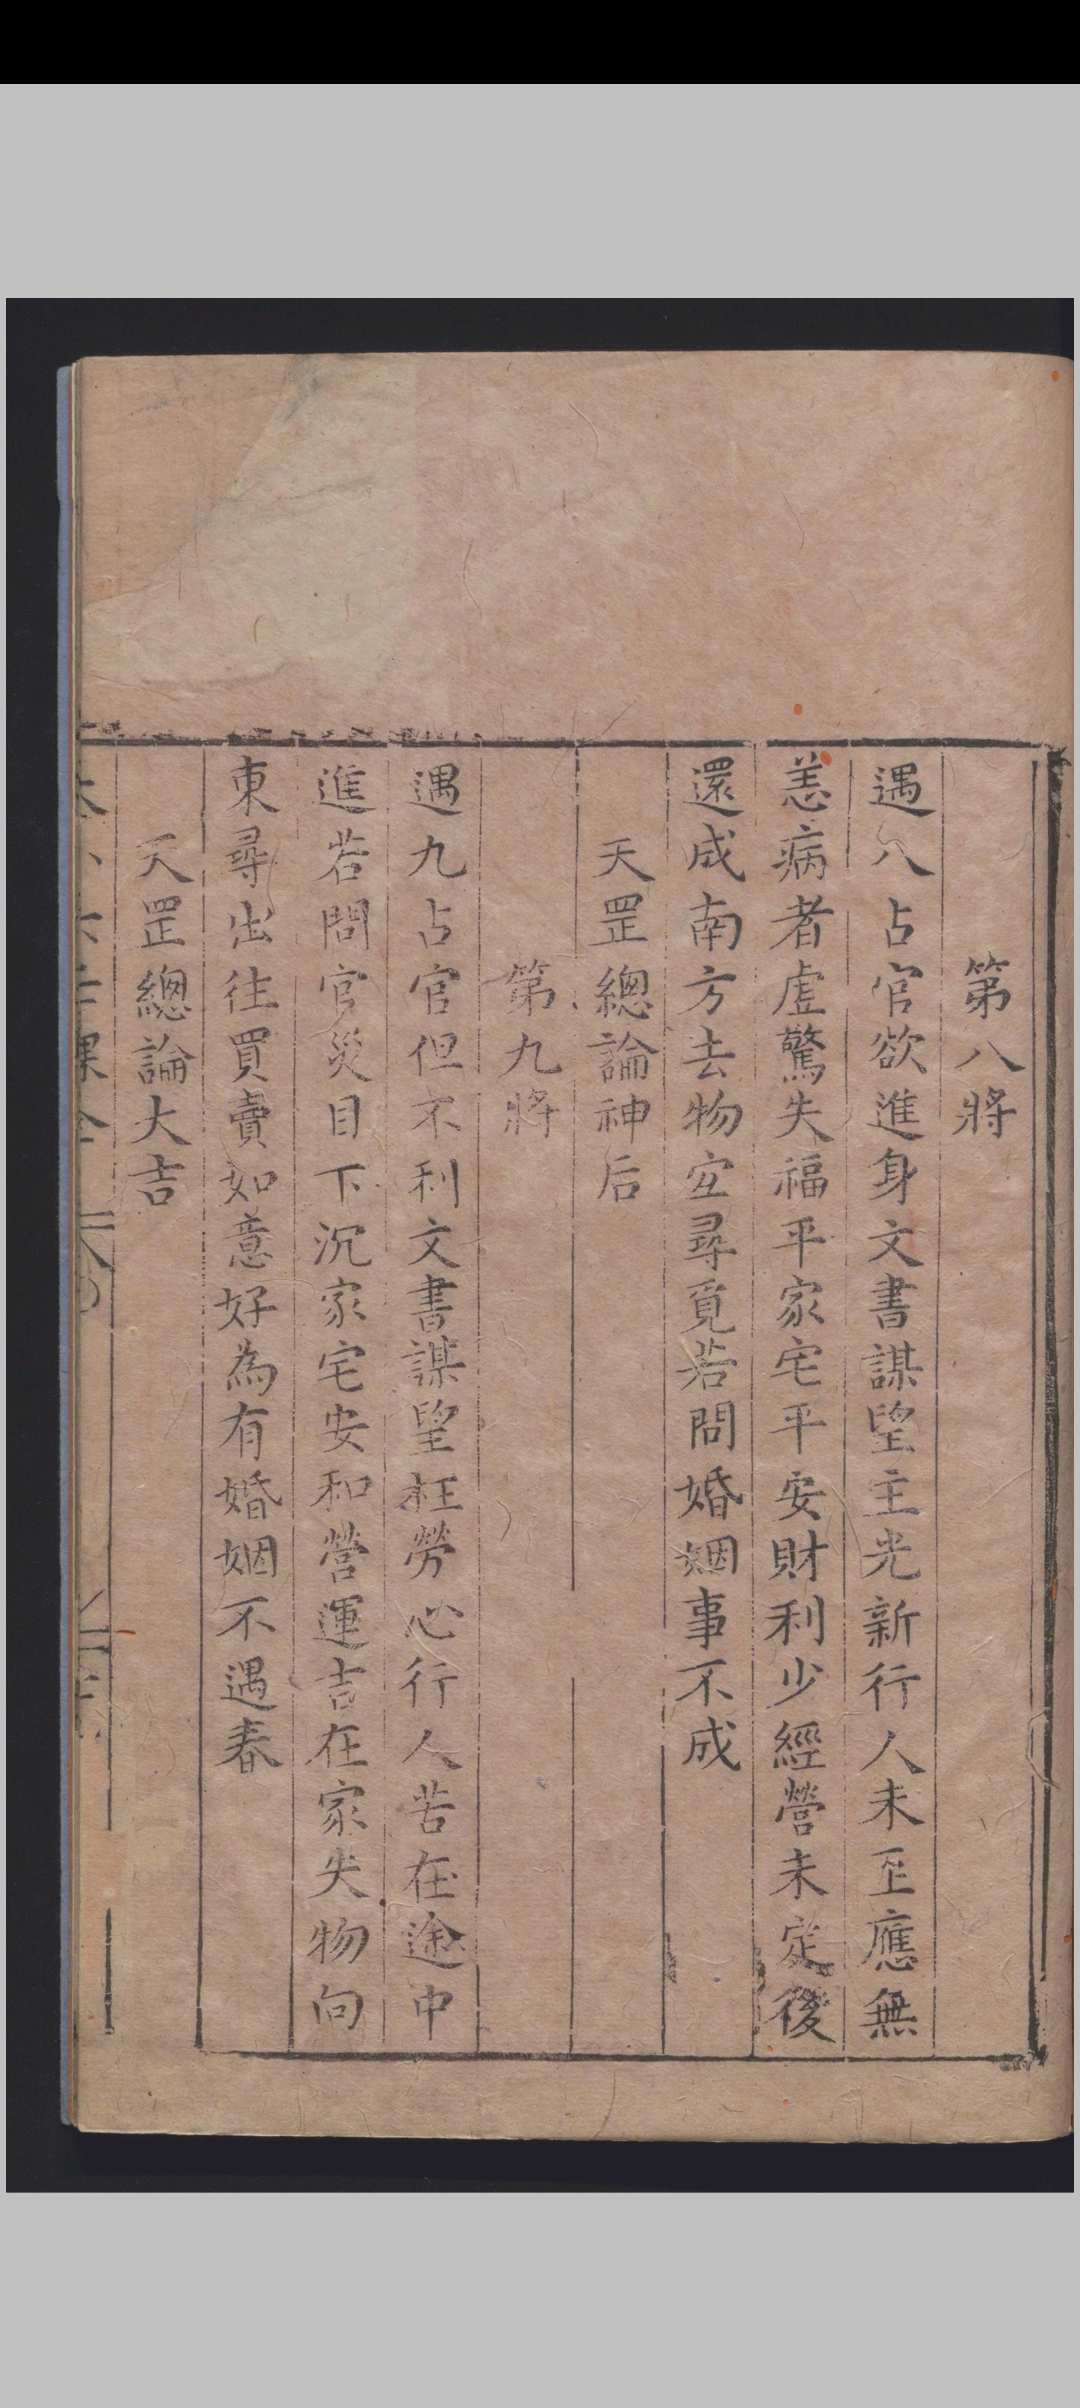 第八將
遇八占官欲進身文書謀望主光新行人未至應無
恙病者虛驚失福平家宅平安財利少經營未定後
還成南方去物宜尋覓若問婚姻事不成
天罡總論神后
第九將
遇九占官但不利文書謀望枉勞心行人苦在途中
進若問官災目下沉家宅安和營運吉在家失物向
東尋出往買賣如意好為有婚姻不遇春
天罡總論大吉